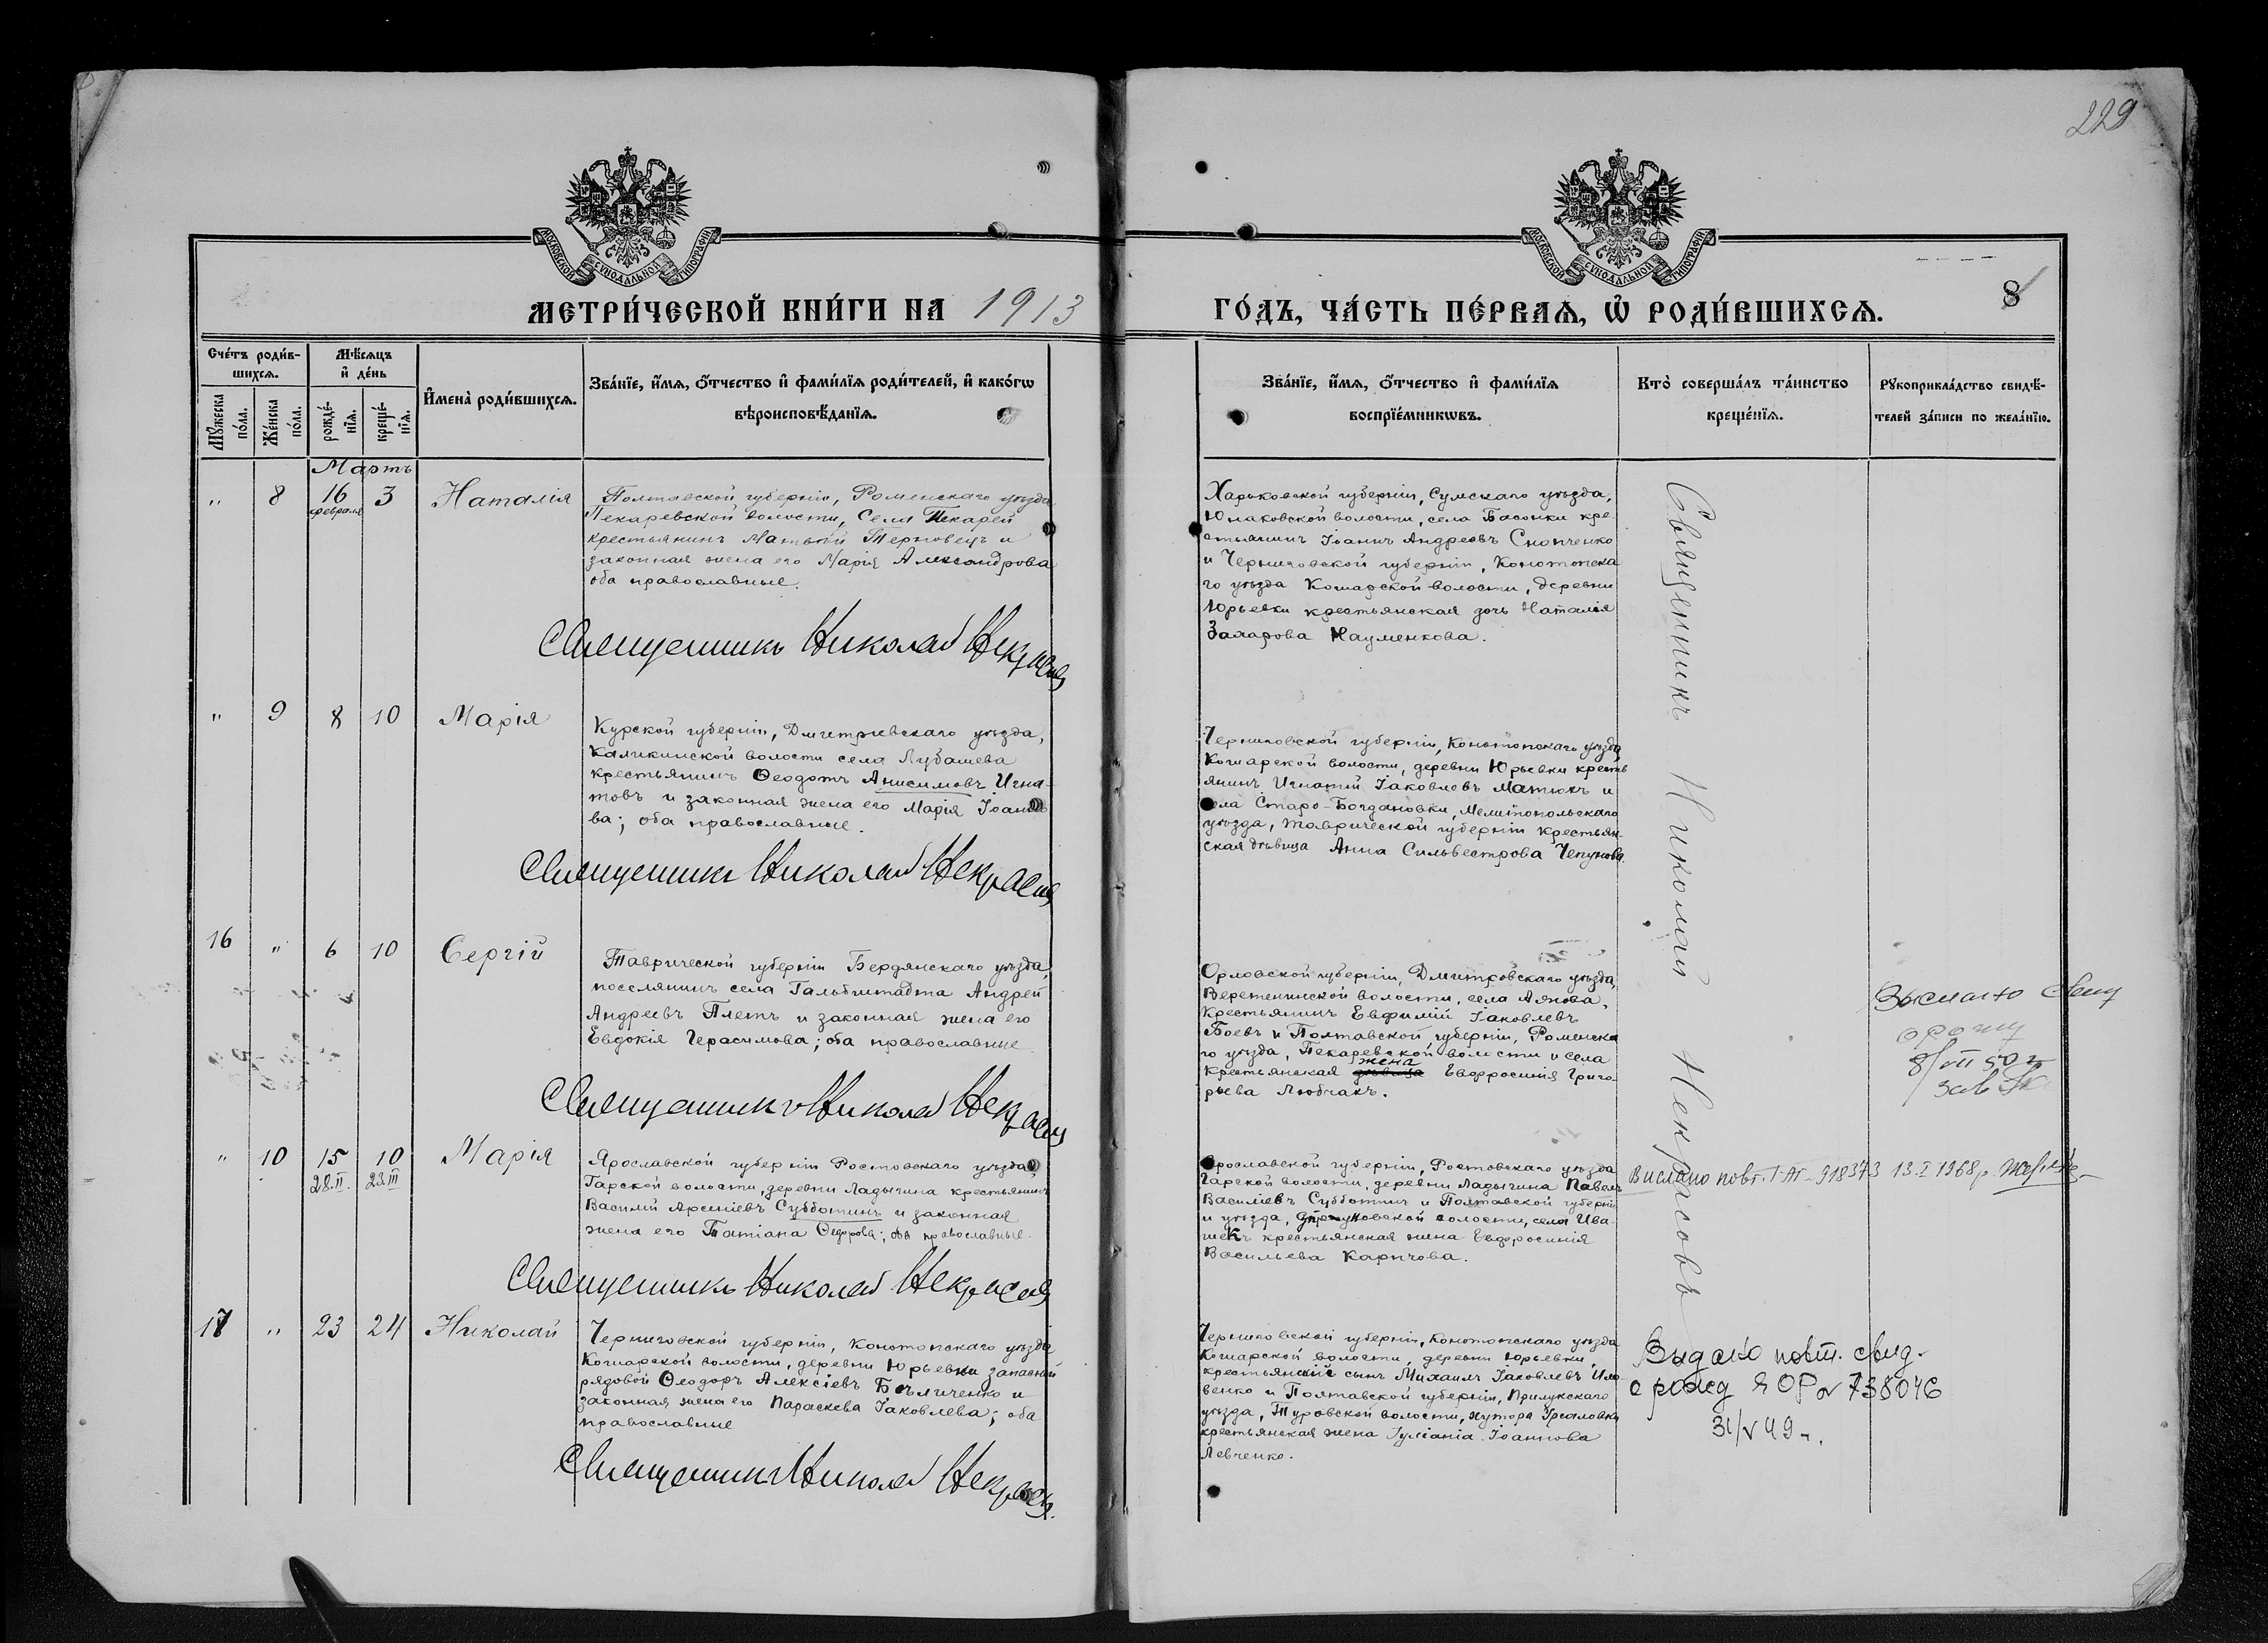 229
МОСКОВСКОЙ СѴНОДАЛЬНОЙ ТИПОГРАФИИ
МОСКОВСКОЙ СѴНОДАЛЬНОЙ ТИПОГРАФИИ
МЕТРИ́ЧЕСКОЙ КНИ́ГИ НА 1913
ГО́ДЪ, ЧА́СТЬ ПЕ́РВАѦ, Ѡ҆ РОДИ́ВШИХСѦ.
8
Сче́тъ роди́в-
шихсѧ.
Мѣ́сѧцъ
и҆ де́нь
Мꙋ́жеска
по́ла.
Же́нска
по́ла.
рожде́-
нїѧ.
креще́-
нїѧ.
И҆мена̀ роди́вшихсѧ.
Зва́нїе, и҆́мѧ, ѻ҆́тчество и҆ фами́лїѧ роди́телей, и҆ како́гѡ
вѣроисповѣ́данїѧ.
Зва́нїе, и҆́мѧ, ѻ҆́тчество и҆ фами́лїѧ
воспрїе́мникѡвъ.
Кто̀ соверша́лъ та́инство
креще́нїѧ.
Рꙋкоприкла́дство свидѣ́-
телей за́писи по жела́нїю.
Мартъ
" 8 16 февраля 3 Наталія
Полтавской губерніи, Роменскаго уѣзда
Пекаревской волости, Села Пекарей
крестьянинъ Матѳій Терновецъ и
законная жена его Марія Александрова
оба православные.
Священникъ Николай Некрасовъ
Харьковской губерніи, Сумскаго уѣзда,
Юнаковской волости, села Басовки кре-
стьянинъ Іоаннъ Андреевъ Снопченко
и Черниговской губерніи, Конотопска
го уѣзда Кошарской волости, деревни
Юрьевки крестьянская дочь Наталія
Захарова Науменкова.
Священникъ Николай Некрасовъ
" 9 8 10 Марія
Курской губерніи, Дмитріевскаго уѣзда,
Каликинской волости села Лубашева
крестьянинъ Ѳеодотъ Анисимовъ Игна-
товъ и законная жена его Марія Іоанно
ва; оба православные.
Священникъ Николай Некрасовъ
Черниговской губерніи, Конотопскаго уѣзда,
Кошарской волости, деревни Юрьевки кресть
янинъ Игнатій Іаковлевъ Матюхъ и
села Старо-Богдановки, Мелитопольскаго
уѣзда, Таврической губерніи крестьян-
ская дѣвица Анна Сильвестрова Чепунова.
16 " 6 10 Сергій
Таврической губерніи Бердянскаго уѣзда,
поселянинъ села Гальбштадта Андрей
Андреевъ Плетъ и законная жена его
Евдокія Герасимова; оба православные
Священникъ Николай Некрасовъ
Орловской губерніи, Дмитровскаго уѣзда,
Веретенинской волости, села Алюва,
Крестьянинъ Евфимій Іаковлевъ
Боевъ и Полтавской губерніи, Роменска
го уѣзда, Пекаревской волости и села
жена
крестьянская Евфросинія Григо-
рьева Любчакъ.
Выслано
8/VII 50 г
" 10 15 10 Марія
28.II. 23.III
Ярославской губерніи Ростовскаго уѣзда,
Гарской волости, деревни Ладычина крестьянинъ
Василій Арсеніевъ Субботинъ и законная
жена его Татіана Ѳедорова; оба православные.
Священникъ Николай Некрасовъ
Ярославской губерніи, Ростовскаго уѣзда
Гарской волости, деревни Ладычина Павелъ
Василіевъ Субботинъ и Полтавской губерніи
и уѣзда, волости, села Ива-
шекъ крестьянская жена Евфросинія
Васильева Карпчова.
Вислано повт. I-АГ-918373 13.I 1968р.
17 " 23 24 Николай
Черниговской губерніи, Конотопскаго уѣзда
Кошарской волости, деревни Юрьевки запасный
рядовой Ѳеодоръ Алексіевъ Бѣличенко и
законная жена его Параскева Іаковлева; оба
православные
Священникъ Николай Некрасовъ.
Черниговской губерніи, Конотопскаго уѣзда
Кошарской волости, деревни Юрьевки,
крестьянскій сынъ Михаилъ Іаковлевъ
венко и Полтавской губерніи, Прилукскаго
уѣзда, Туровской волости, хутора
крестьянская жена Іуліанія Іоаннова
Левченко.
Выдано повт. свид.
о рожд ЯОР № 738046
31/V 49 г.